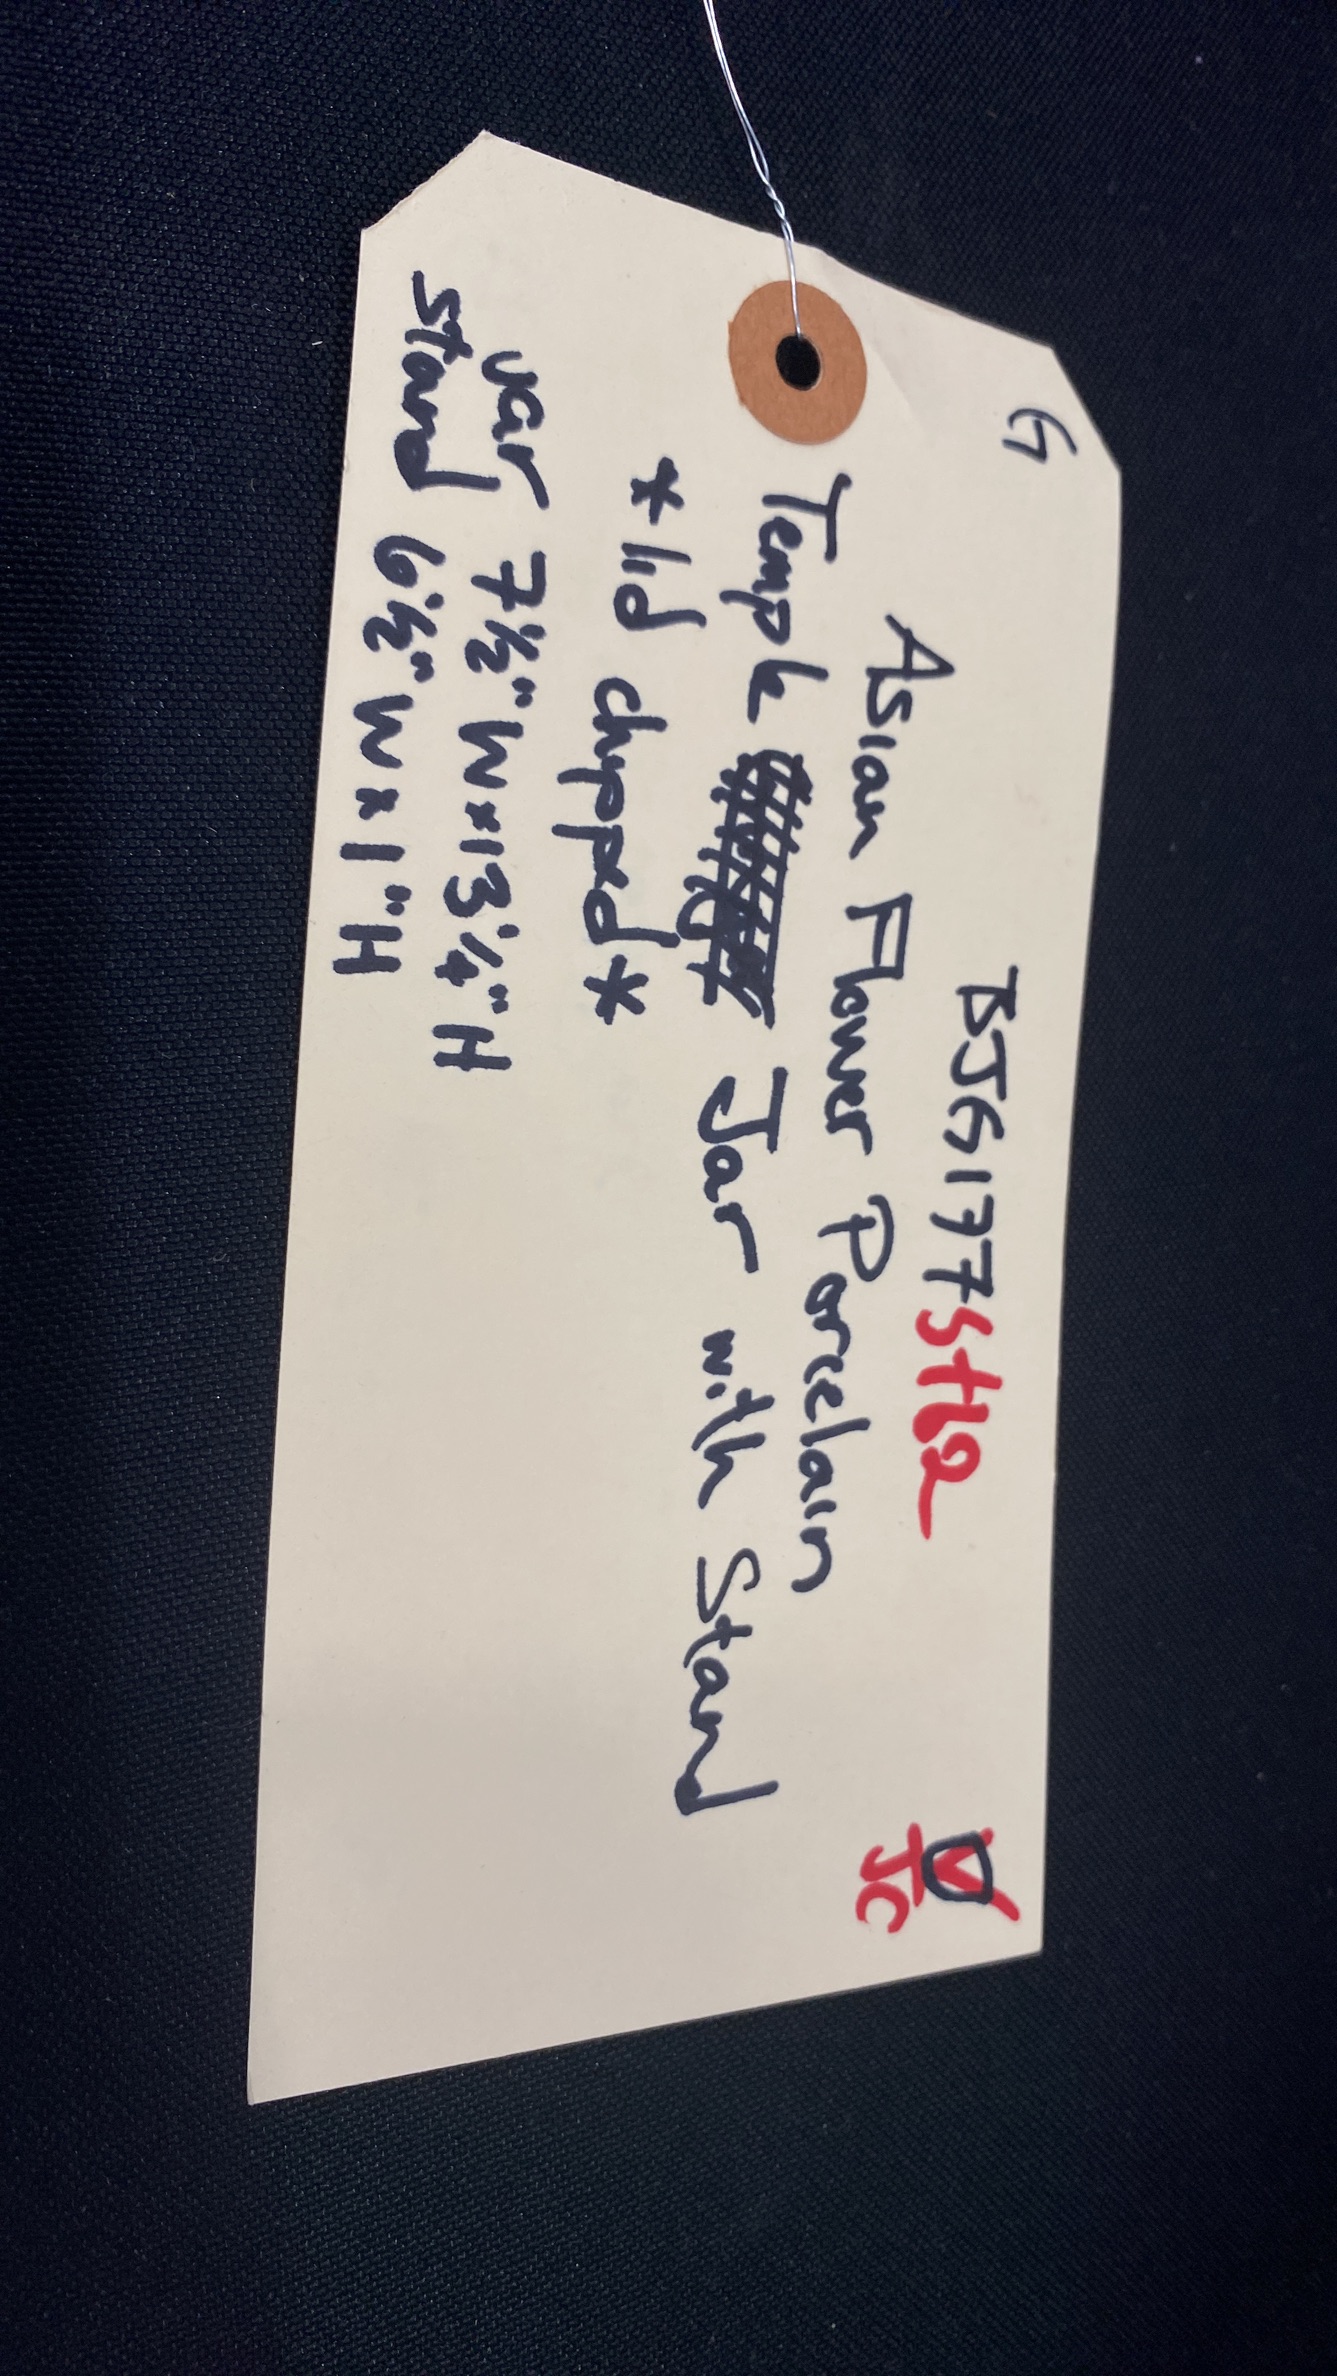 G
BJG177
Asian Flower Porcelain
Temple Jar with Stand
*lid chipped*
Jar 7½" W x 13¼" H
Stand 6½" W x 1" H
JC